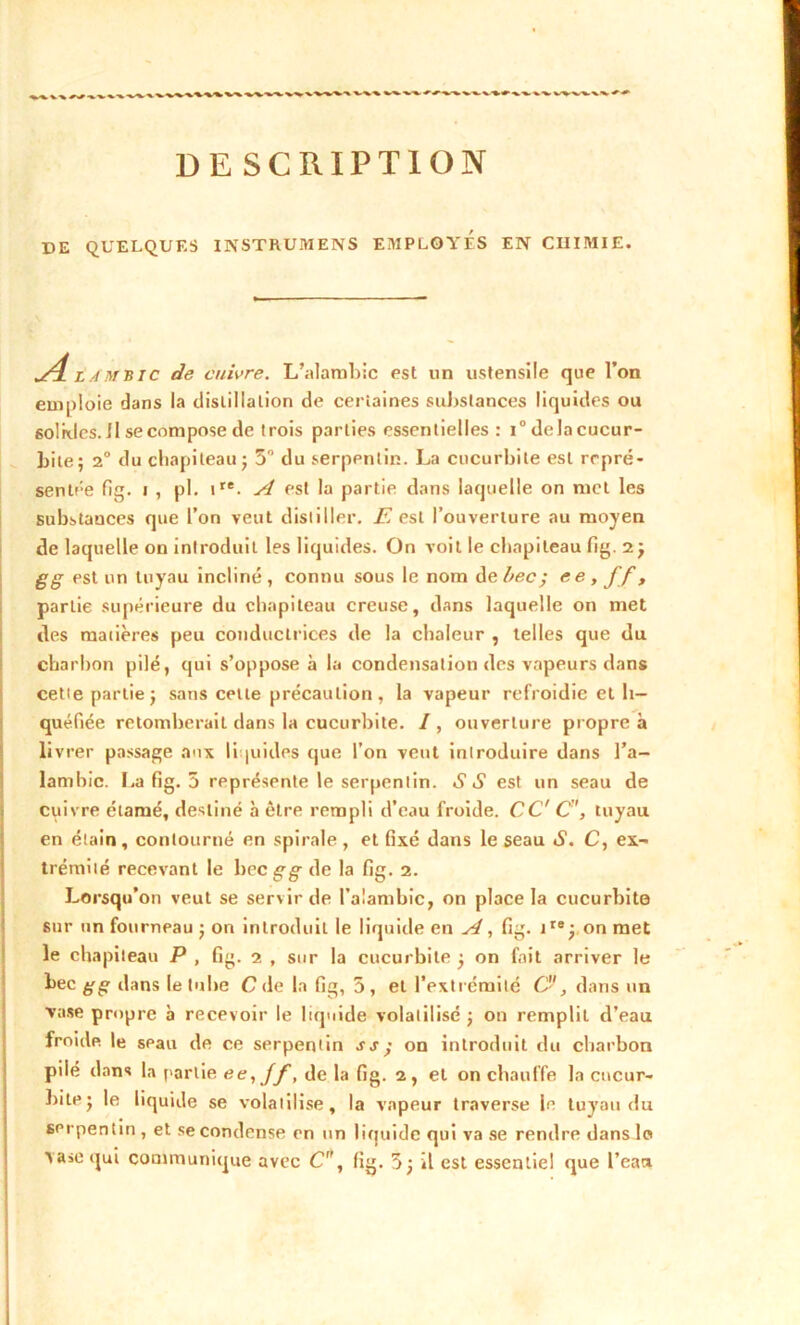 DESCRIPTION
DE QUELQUES INSTRUMENS EMPLOYÉS EN CHIMIE.
ALAMBIC de cuivre. L'alambic est un ustensile que l'on
emploie dans la distillation de certaines substances liquides ou
solides. Il se compose de trois parties essentielles : 1° de la cucur-
bite; 2° du chapiteau; 3° du serpentin. La cucurbite est repré-
sentée fig. 1, pl. 1re. A est la partie dans laquelle on met les
substances que l'on veut distiller. E est l'ouverture au moyen
de laquelle on introduit les liquides. On voit le chapiteau fig. 2;
gg est un tuyau incliné, connu sous le nom de bec; ee, ff,
partie supérieure du chapiteau creuse, dans laquelle on met
des matières peu conductrices de la chaleur, telles que du
charbon pilé, qui s'oppose à la condensation des vapeurs dans
cette partie; sans cette précaution, la vapeur refroidie et li-
quéfiée retomberait dans la cucurbite. I, ouverture propre à
livrer passage aux liquides que l'on veut introduire dans l'a-
lambic. La fig. 3 représente le serpentin. SS est un seau de
cuivre étamé, destiné à être rempli d'eau froide. CC' C", tuyau
en étain, contourné en spirale, et fixé dans le seau S. C, ex-
trémité recevant le bec gg de la fig. 2.
Lorsqu'on veut se servir de l'alambic, on place la cucurbite
sur un fourneau; on introduit le liquide en A, fig. 1re; on met
le chapiteau P, fig. 2, sur la cucurbite; on fait arriver le
bec gg dans le tube C de la fig, 3, et l'extrémité C", dans un
vase propre à recevoir le liquide volatilisé; on remplit d'eau
froide le seau de ce serpentin ss; on introduit du charbon
pilé dans la partie ee, ff, de la fig. 2, et on chauffe la cucur-
bite; le liquide se volatilise, la vapeur traverse le tuyau du
serpentin, et se condense en un liquide qui va se rendre dans le
vase qui communique avec C", fig. 3; il est essentiel que l'eau